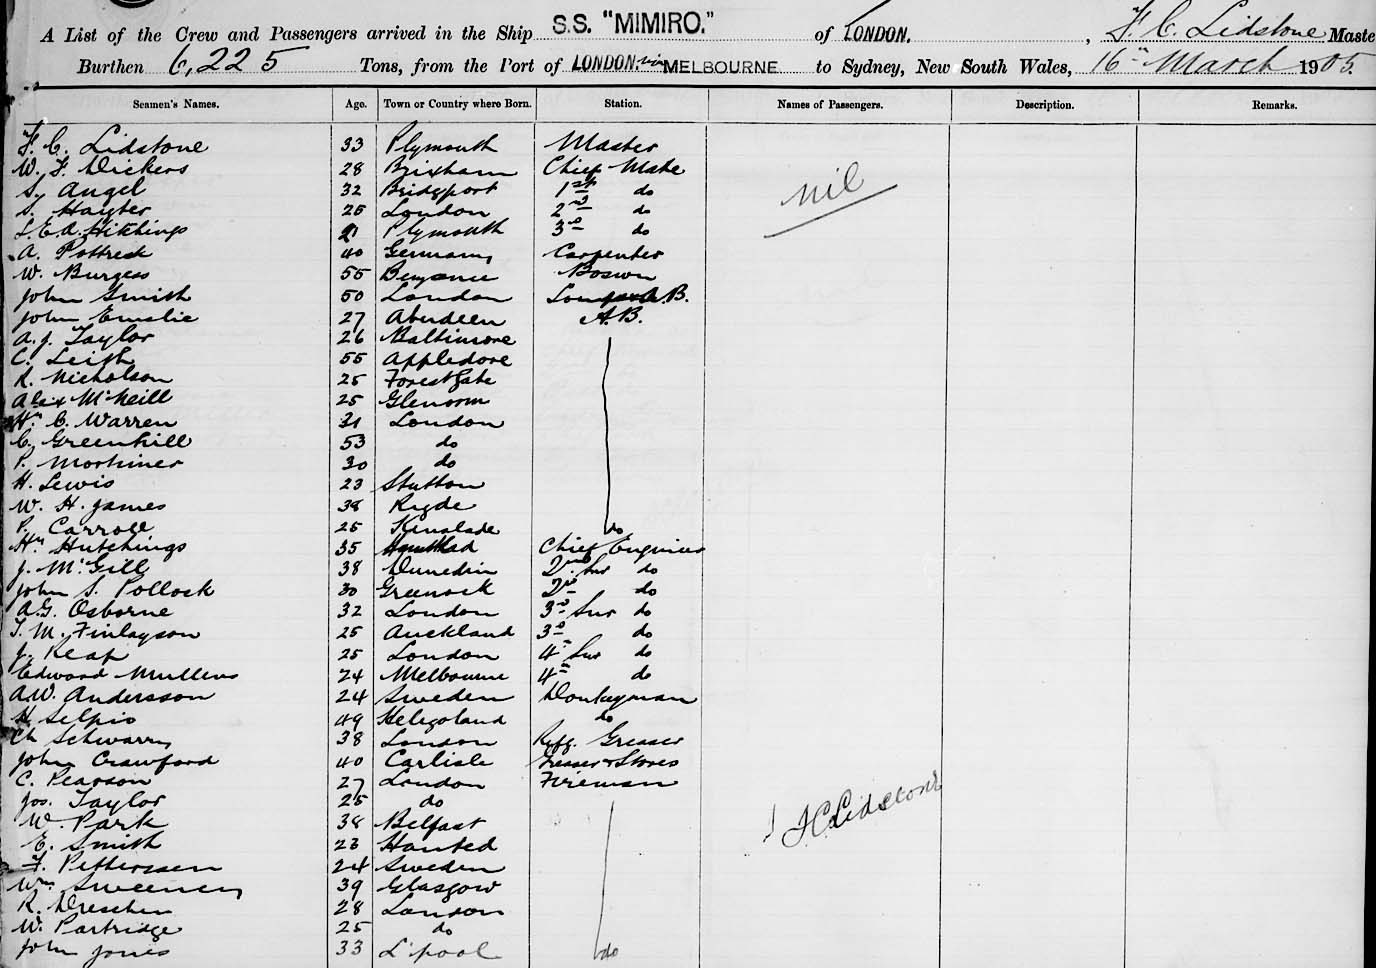 A List of the Crew and Passengers arrived in the Ship S.S. "MIMIRO." of LONDON. , F. C. Lidstone Maste
Burthen 6,225 Tons, from the Port of LONDON. via MELBOURNE to Sydney, New South Wales, 16th March 1905.
Seamen's Names. Age. Town or Country where Born. Station. Names of Passengers. Description. Remarks.
F. C. Lidstone 33 Plymouth Master
W. F. Dickers 28 Brixham Chief Mate
S. Angel 32 Bridgport 1st do nil
S. Hayter 25 London 2nd do
L. E. A. Hitchings 21 Plymouth 3rd do
A. 40 Germany Carpenter
W. Burgess 55 Bosun
John Smith 50 London A.B.
John Emslie 27 Aberdeen A.B.
A. J. Taylor 26 Baltimore
C. Leigh 55 Appledore
R. Nicholson 25 Forest Gate
Alex McNeill 25 Glenorm
Hy C. Warren 31 London
C. Greenhill 53 do
P. Mortimer 30 do
H. Lewis 23 Stutton
W. H. James 38 Ryde
P. Carroll 25 do
Hy Hutchings 35 Chief Engineer
J. McGill 38 Dunedin 2nd Sur do
John S. Pollock 30 Greenock 2nd do
A. G. Osborne 32 London 3rd Sur do
T. M. Finlayson 25 Auckland 3rd do
J. Reap 25 London 4th Sur do
Edward Mullens 24 Melbourne 4th do
A. W. Andersson 24 Sweden Donkeyman
H. Selpio 49 Heligoland do
Ch. 38 London Refg. Greaser
John Crawford 40 Carlisle Greaser & Stores
C. Pearson 27 London Fireman
Jos. Taylor 25 do
W. Park 38 Belfast F C Lidstone
E. Smith 23
F. Petterssen 24 Sweden
Wm Sweeney 39 Glasgow
R. 28 London
W. Partridge 25 do
John Jones 33 L'pool do